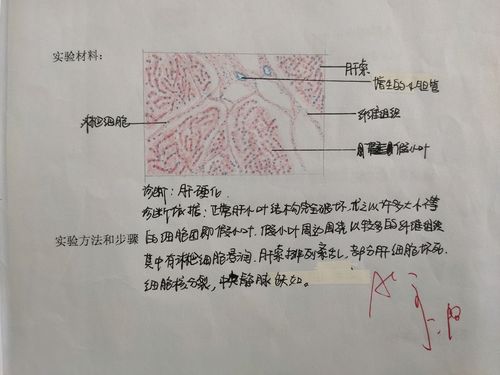 实验材料:
肝索
增生的小胆管
淋巴细胞
纤维组织
假小叶
诊断:肝硬化.
诊断依据:正常肝小叶结构完全破坏,代之以许多大小不等
的细胞团即假小叶.假小叶周边围绕以较多的纤维组织
实验方法和步骤
其中有淋巴细胞浸润,肝索排列紊乱,部分肝细胞坏死.
细胞核分裂,中央静脉缺如。